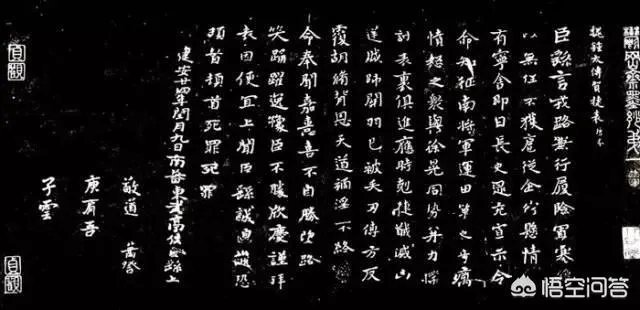 魏鍾太傅賀捷表
臣繇言戎路兼行履險冒寒
以無任不獲扈從企佇懸情
有寧舍即日長史逯充宣示令
命知征南將軍運田單之奇厲
憤怒之衆與徐晃同勢并力撲
討表裏俱進應時剋捷馘滅凶
逆賊帥關羽已被矢刃傅方反
覆胡脩背恩天道禍淫不終
命奉聞嘉憙喜不自勝望路
笑踊躍逸豫臣不勝欣慶謹拜
表因便宜上聞臣繇誠惶誠恐
頓首頓首死罪死罪
建安廿四年閏月九日南蕃東武亭侯臣繇上
敬道
庾肩吾
子雲
貞觀
貞觀
悟空问答